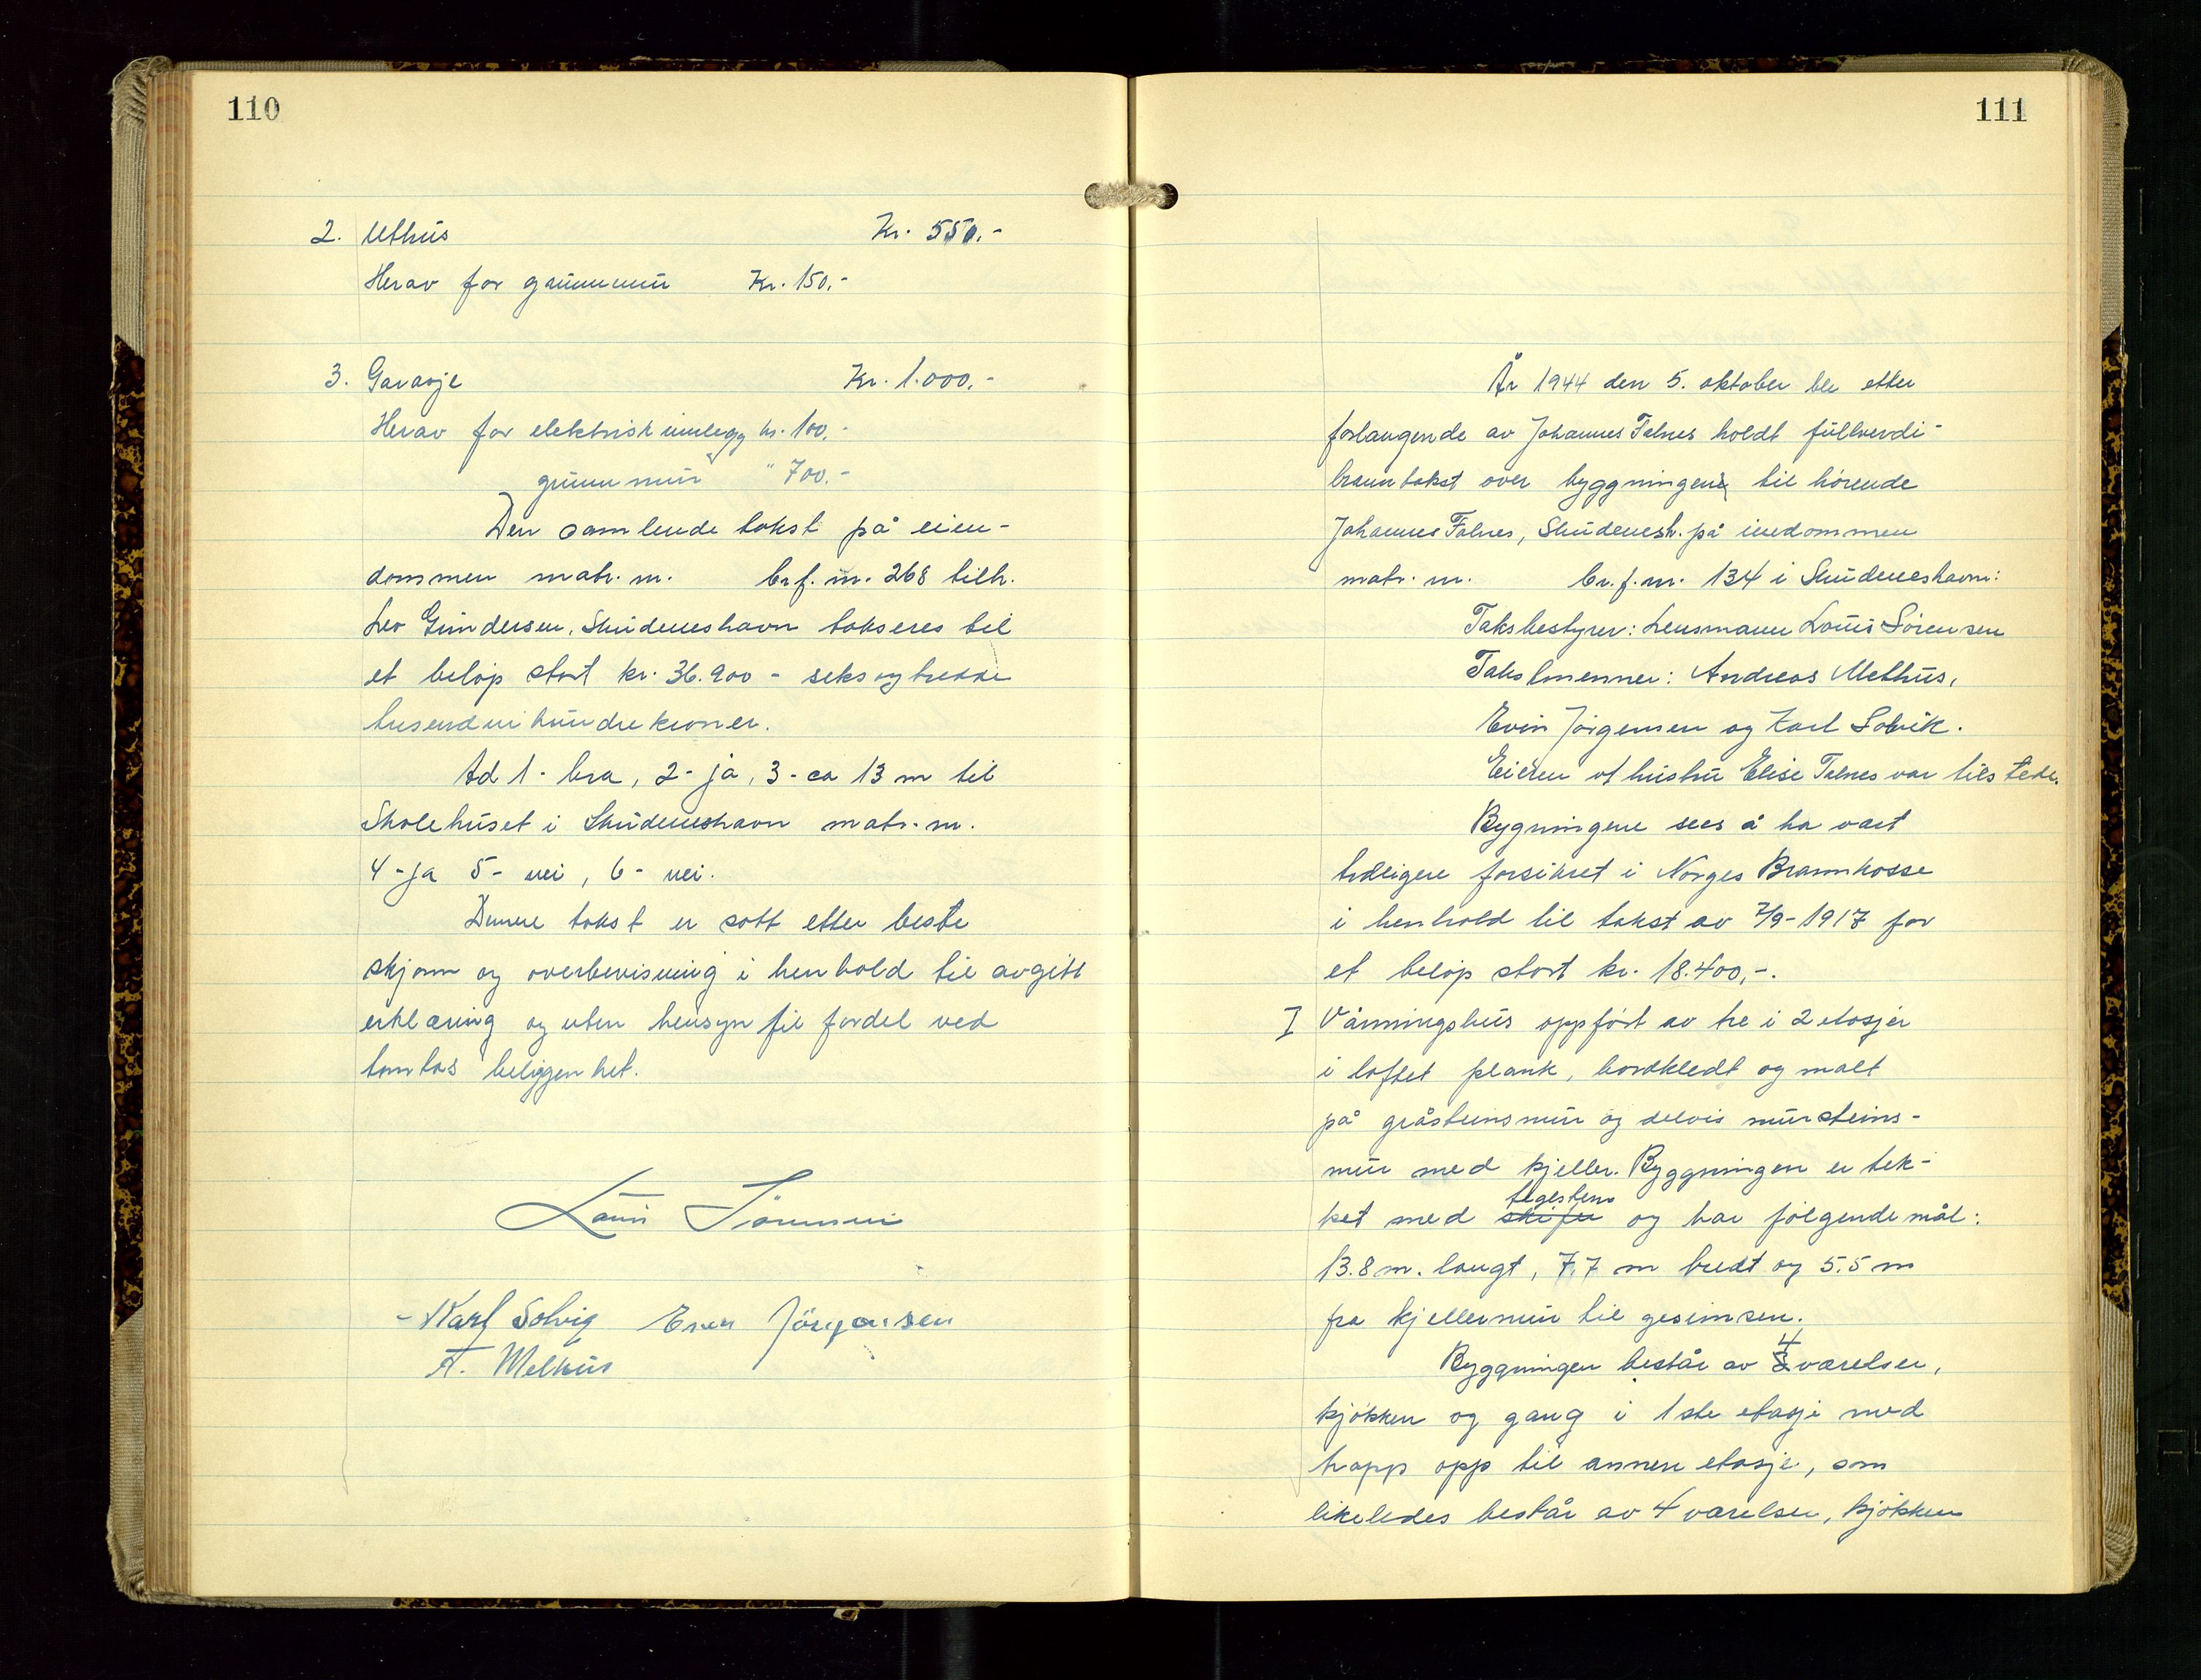 110
2. Uthus Kr. 550.-
Herav for grunnmur Kr. 150.-
3. Garasje Kr. 1.000.-
Herav for elektrisk innlegg kr. 100.-
grunnmur " 700.-
Den samlende takst på eien-
dommen matr. nr. br.f. nr. 268 tilh.
Leo Gundersen, Skudeneshavn takseres til
et beløp stort kr. 36.900 - seksogtredve
tusendnihundrekroner.
Ad 1 - bra, 2 - ja, 3 - ca 13 m til
Skolehuset i Skudeneshavn matr. nr.
4 - ja 5 - nei, 6 - nei.
Denne takst er satt etter beste
skjønn og overbevisning i henhold til avgitt
erklæring og uten hensyn til fordel ved
tomtas beliggenhet.
Louis Sørensen
Karl Solvig Even Jörgensen
A. Melhus
111
År 1944 den 5. oktober ble etter
forlangende av Johannes Falnes holdt fullverdi-
branntakst over byggningene til hørende
Johannes Falnes, Skudenesh. på eiendommen
matr. nr. br. f. nr. 134 i Skudeneshavn:
Takstbestyrer: Lensmann Louis Sørensen
Takstmenner: Andreas Melhus,
Even Jørgensen og Karl Solvik.
Eieren v/ hustru Elise Falnes var tilstede.
Bygningene sees å ha vært
tidligere forsikret i Norges Brannkasse
i henhold til takst av 7/9-1917 for
et beløp stort kr. 18.400,-.
I Våningshus oppført av tre i 2 etasjer
i loftet plank, bordkledt og malt
på gråsteinsmur og delvis mursteins-
mur med kjeller. Byggningen er tek-
teglsten
ket med skifer og har følgende mål:
13.8 m. langt, 7.7 m bredt og 5.5 m
fra kjellermur til gesimsen.
4
Byggningen består av 3 værelser,
kjøkken og gang i 1ste etasje med
trapp opp til annen etasje, som
likeledes består av 4 værelser, kjøkken